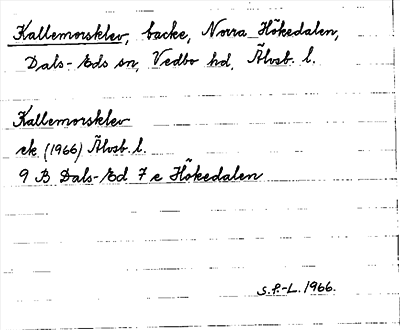 Kallemorsklev, backe, Norra Hökedalen,
Dals-Eds sn, Vedbo hd, Älvsb. l.
Kallemorsklev
ek (1966) Älvsb. l.
9 B Dals-Ed 7 e Hökedalen
S.F.-L. 1966.